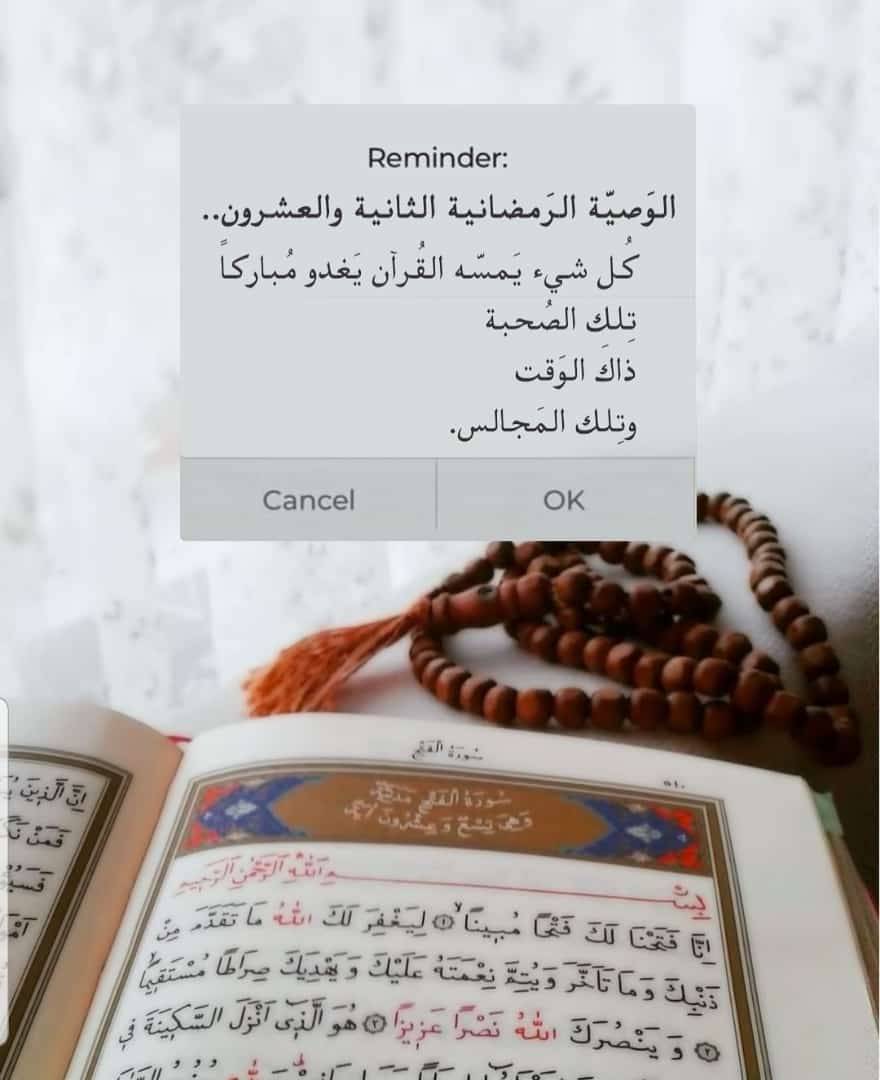 Reminder:
الوَصيّة الرَمضانية الثانية والعشرون..
كُل شيء يَمسّه القُرآن يَغدو مُباركاً
تِلكِ الصُحبة
ذاكَ الوَقت
وتِلك المَجالس.
Cancel
OK
سُورَةُ الْفَتْحِ
٥١٠
سُورَةُ الْفَتْحِ مَدَنِيَّةٌ
وَهِيَ تِسْعٌ وَعِشْرُونَ
بِسْمِ اللّٰهِ الرَّحْمٰنِ الرَّحِيمِ
اِنَّا فَتَحْنَا لَكَ فَتْحًا مُبِينًا ۙ ١ لِيَغْفِرَ لَكَ اللّٰهُ مَا تَقَدَّمَ مِنْ
ذَنْبِكَ وَمَا تَاَخَّرَ وَيُتِمَّ نِعْمَتَهُ عَلَيْكَ وَيَهْدِيَكَ صِرَاطًا مُسْتَقِيمًا ۙ
٢ وَيَنْصُرَكَ اللّٰهُ نَصْرًا عَزِيزًا ٣ هُوَ الَّذِى اَنْزَلَ السَّكِينَةَ فِى
اِنَّ الَّذِينَ